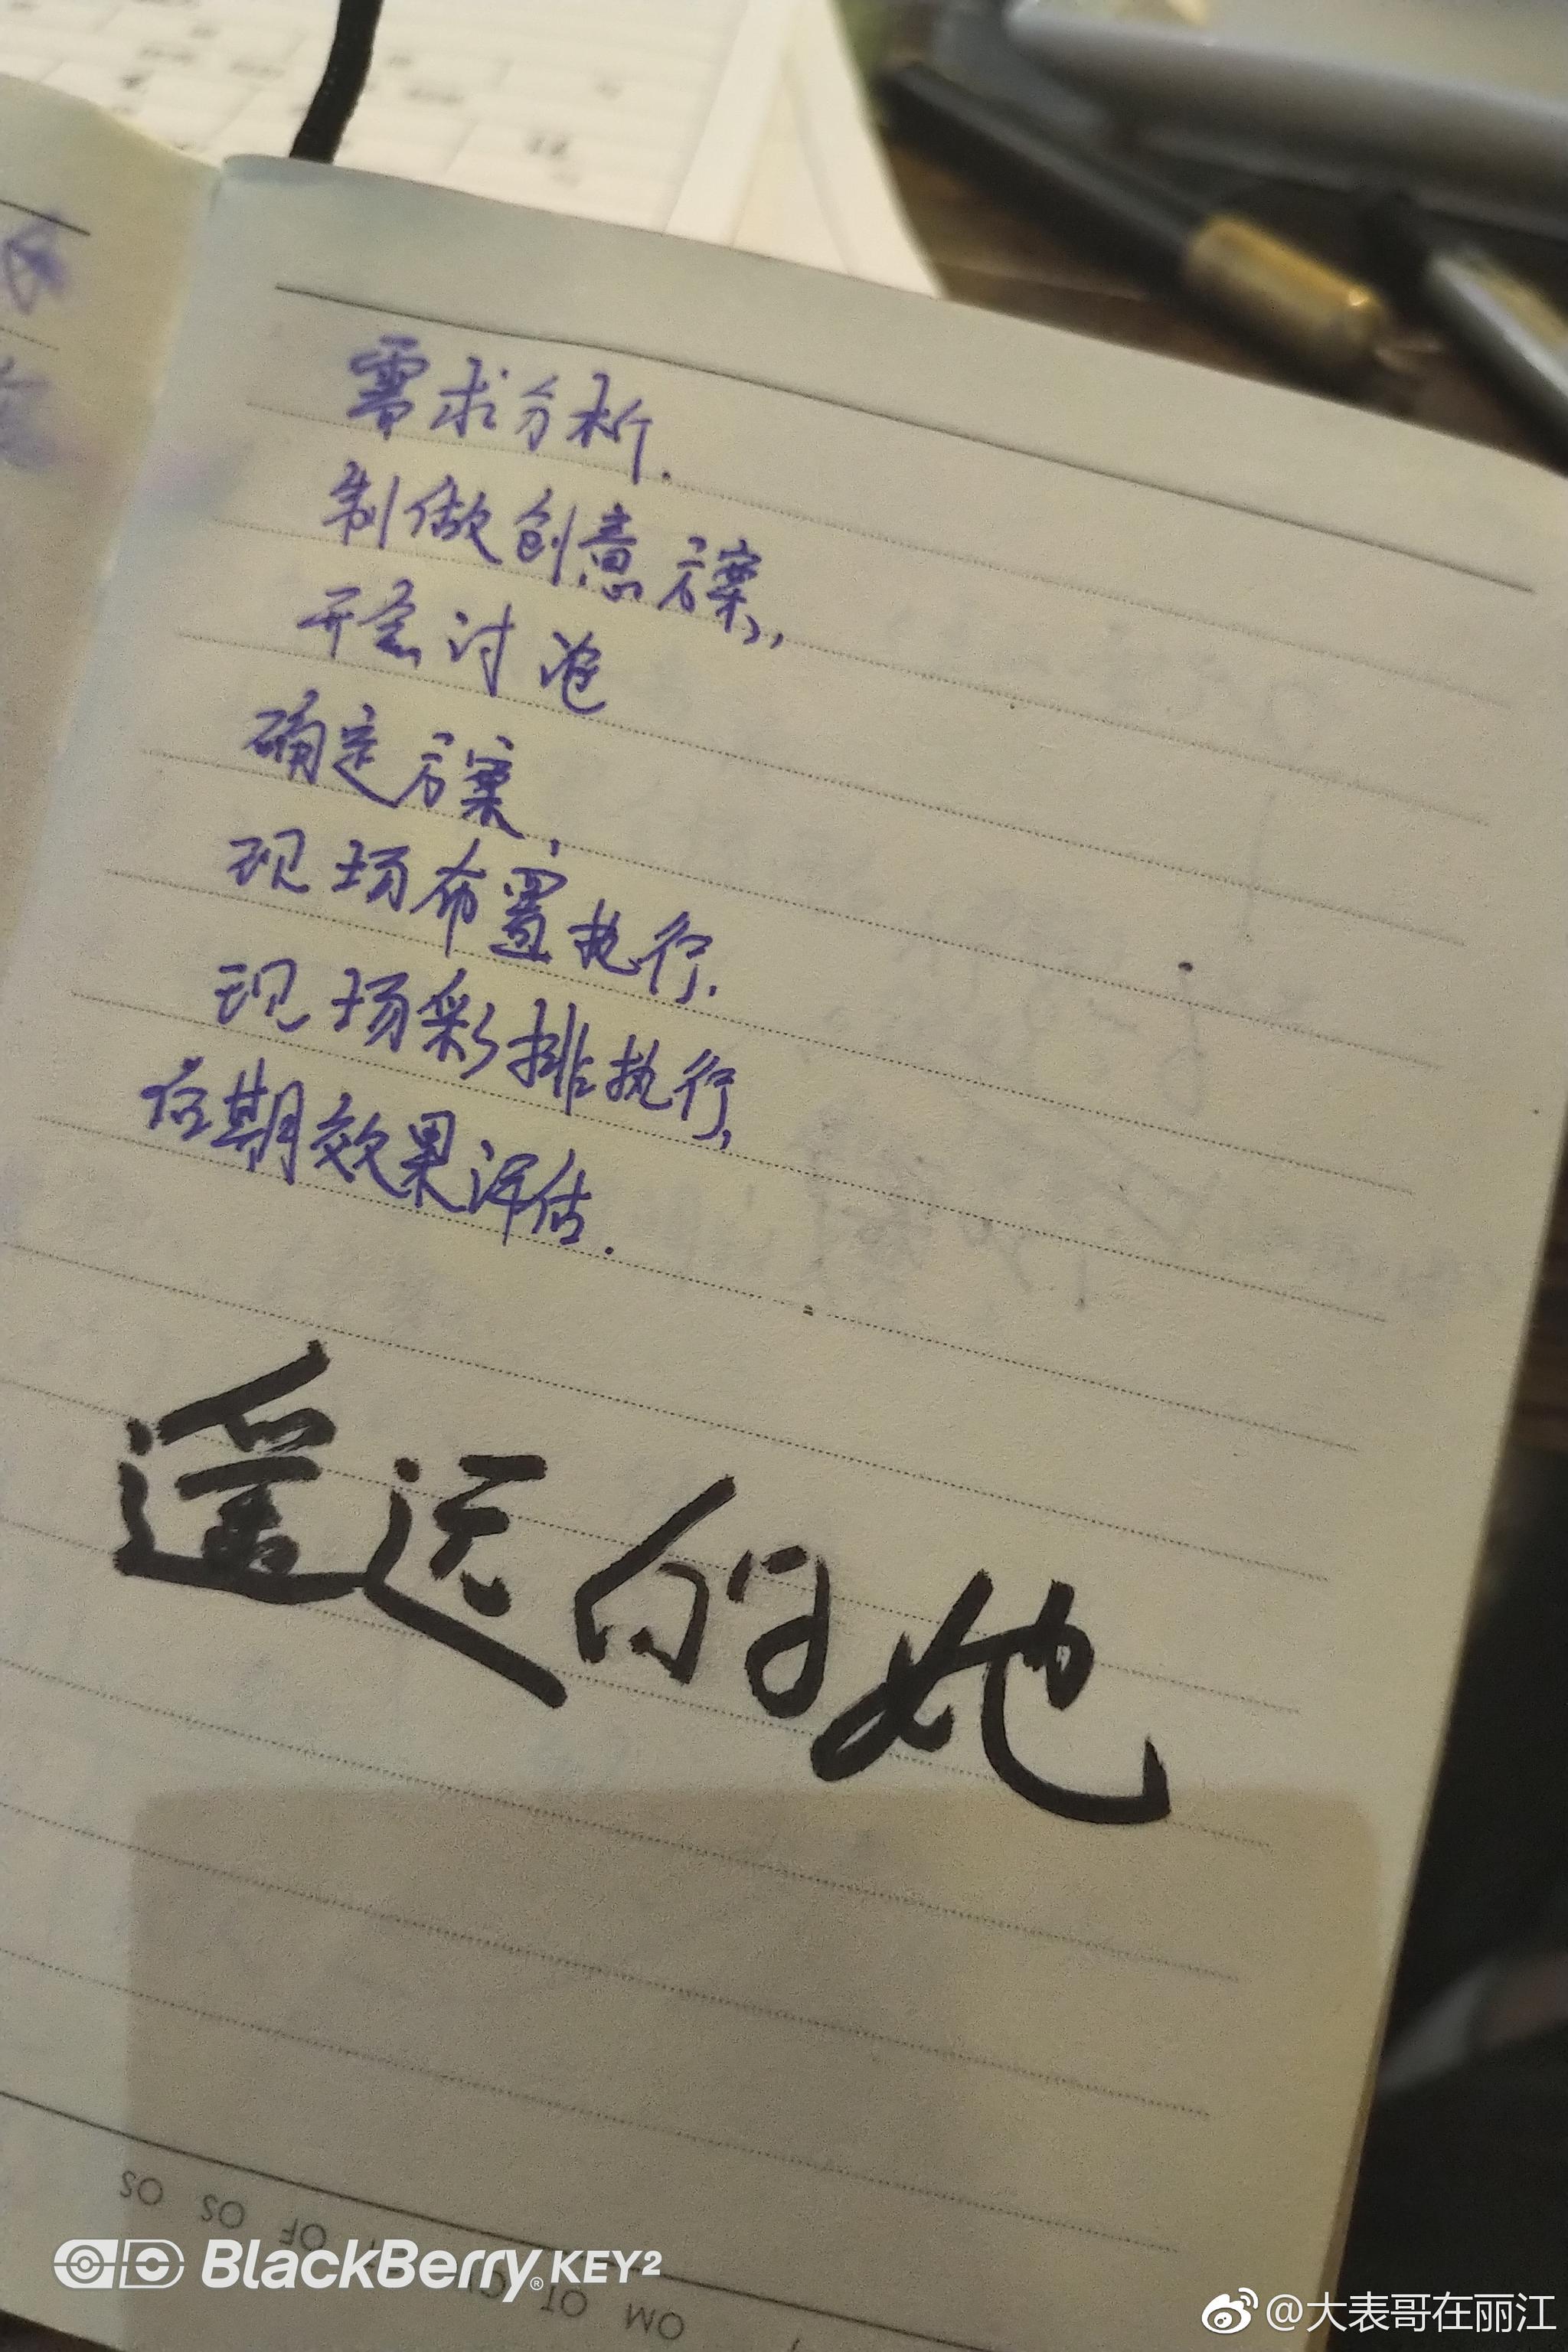 需求分析.
制做创意方案,
开会讨论
确定方案,
现场布置执行.
现场彩排执行,
后期效果评估.
遥远的她
SO SO FO TO MO
BlackBerry® KEY²
@大表哥在丽江